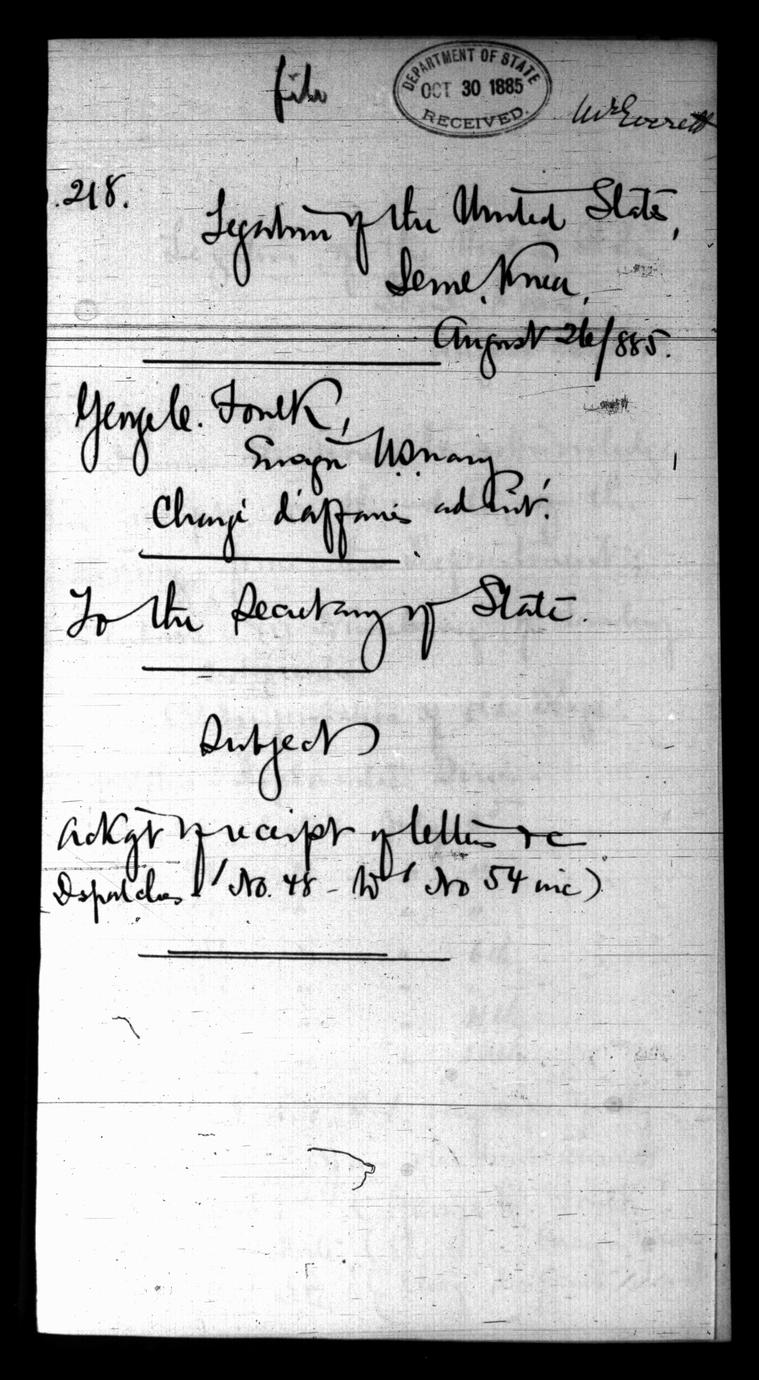 file
DEPARTMENT OF STATE
OCT 30 1885
RECEIVED.
Mr Everett
. 218.
Legation of the United States,
Seoul, Korea,
August 26/885.
George C. Foulk,
Ensign U.S. Navy
Chargé d'affaires ad. int.
To the Secretary of State.
Subject
Ackgt of receipt of letters &c
Dispatches (No. 48 - to No 54 inc)